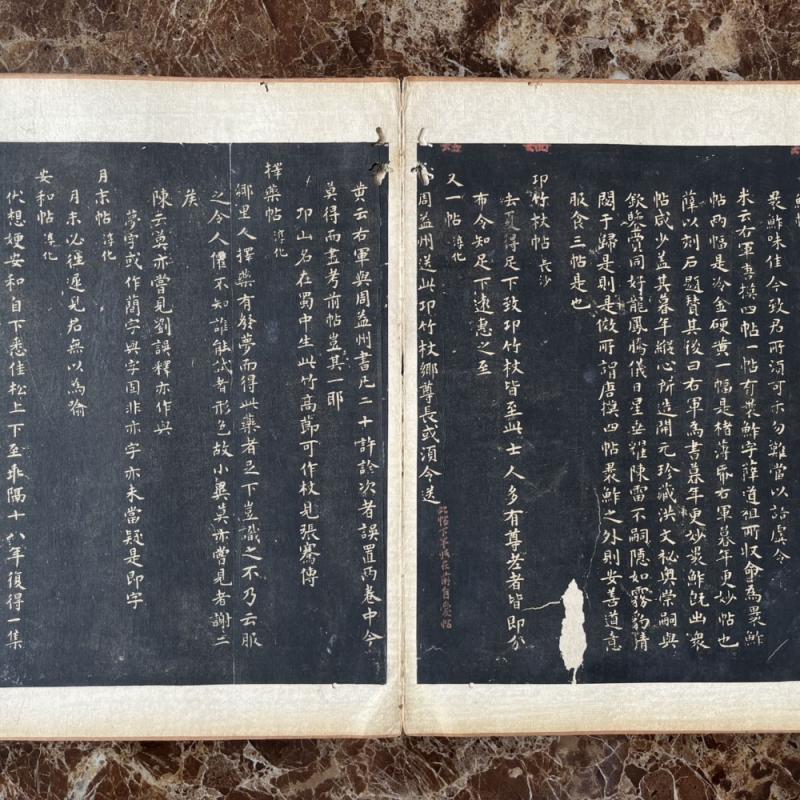 裹鮓味佳今致君所須可示勿難當以語虞令
米云右軍唐摸四帖一帖有裹鮓字薛道祖所收命為裹鮓
帖兩幅是冷金硬黃一幅是楮薄紙右軍暮年更妙帖也
薛以刻石題贊其後曰右軍為書暮年更妙裹鮓既出衆
帖咸少蓋其暮年縱心所造開元珍藏洪文祕與崇嗣與
欽鑒賞同好龍鳳騰儀日星垂耀陳雷不嗣隱如霧豹積
閟于歸是則是倣所謂唐摸四帖裹鮓之外則安善道意
服食三帖是也
邛竹杖帖 長沙
去夏得足下致邛竹杖皆至此士人多有尊老者皆即分
布令知足下遠惠之至
又一帖 淳化
周益州送此邛竹杖卿尊長或須今送
此帖下軍帖在前自愛帖
黃云右軍與周益州書凡二十許詮次者誤置兩卷中今
莫得而盡考前帖豈其一耶
邛山名在蜀中生此竹高節可作杖見張騫傳
擇藥帖 淳化
鄉里人擇藥有發夢而得此藥者足下豈識之不乃云服
之令人僊不知誰能試者形色故小異莫亦嘗見者謝二
侯
陳云莫亦嘗見劉誤釋亦作與
夢字或作蘭字與字固非亦字亦未當疑是即字
月末帖 淳化
月末必往遲見君無以為喻
安和帖 淳化
伏想嫂安和自下悉佳松上下至乖隔十八年復得一集